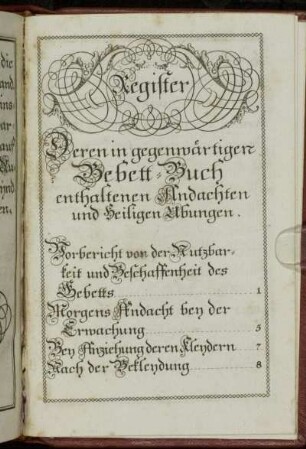 die
and
ns-
ar-
auf
ynd
en.
Register
Deren in gegenwärtigen
Gebett-Buch
enthaltenen Andachten
und Heiligen Ubungen.
Vorbericht von der Nutzbar-
keit und Beschaffenheit des
Gebetts 1
Morgens Andacht bey der
Erwachung 5
Bey Anziehung deren Kleydern 7
Nach der Bekleydung 8